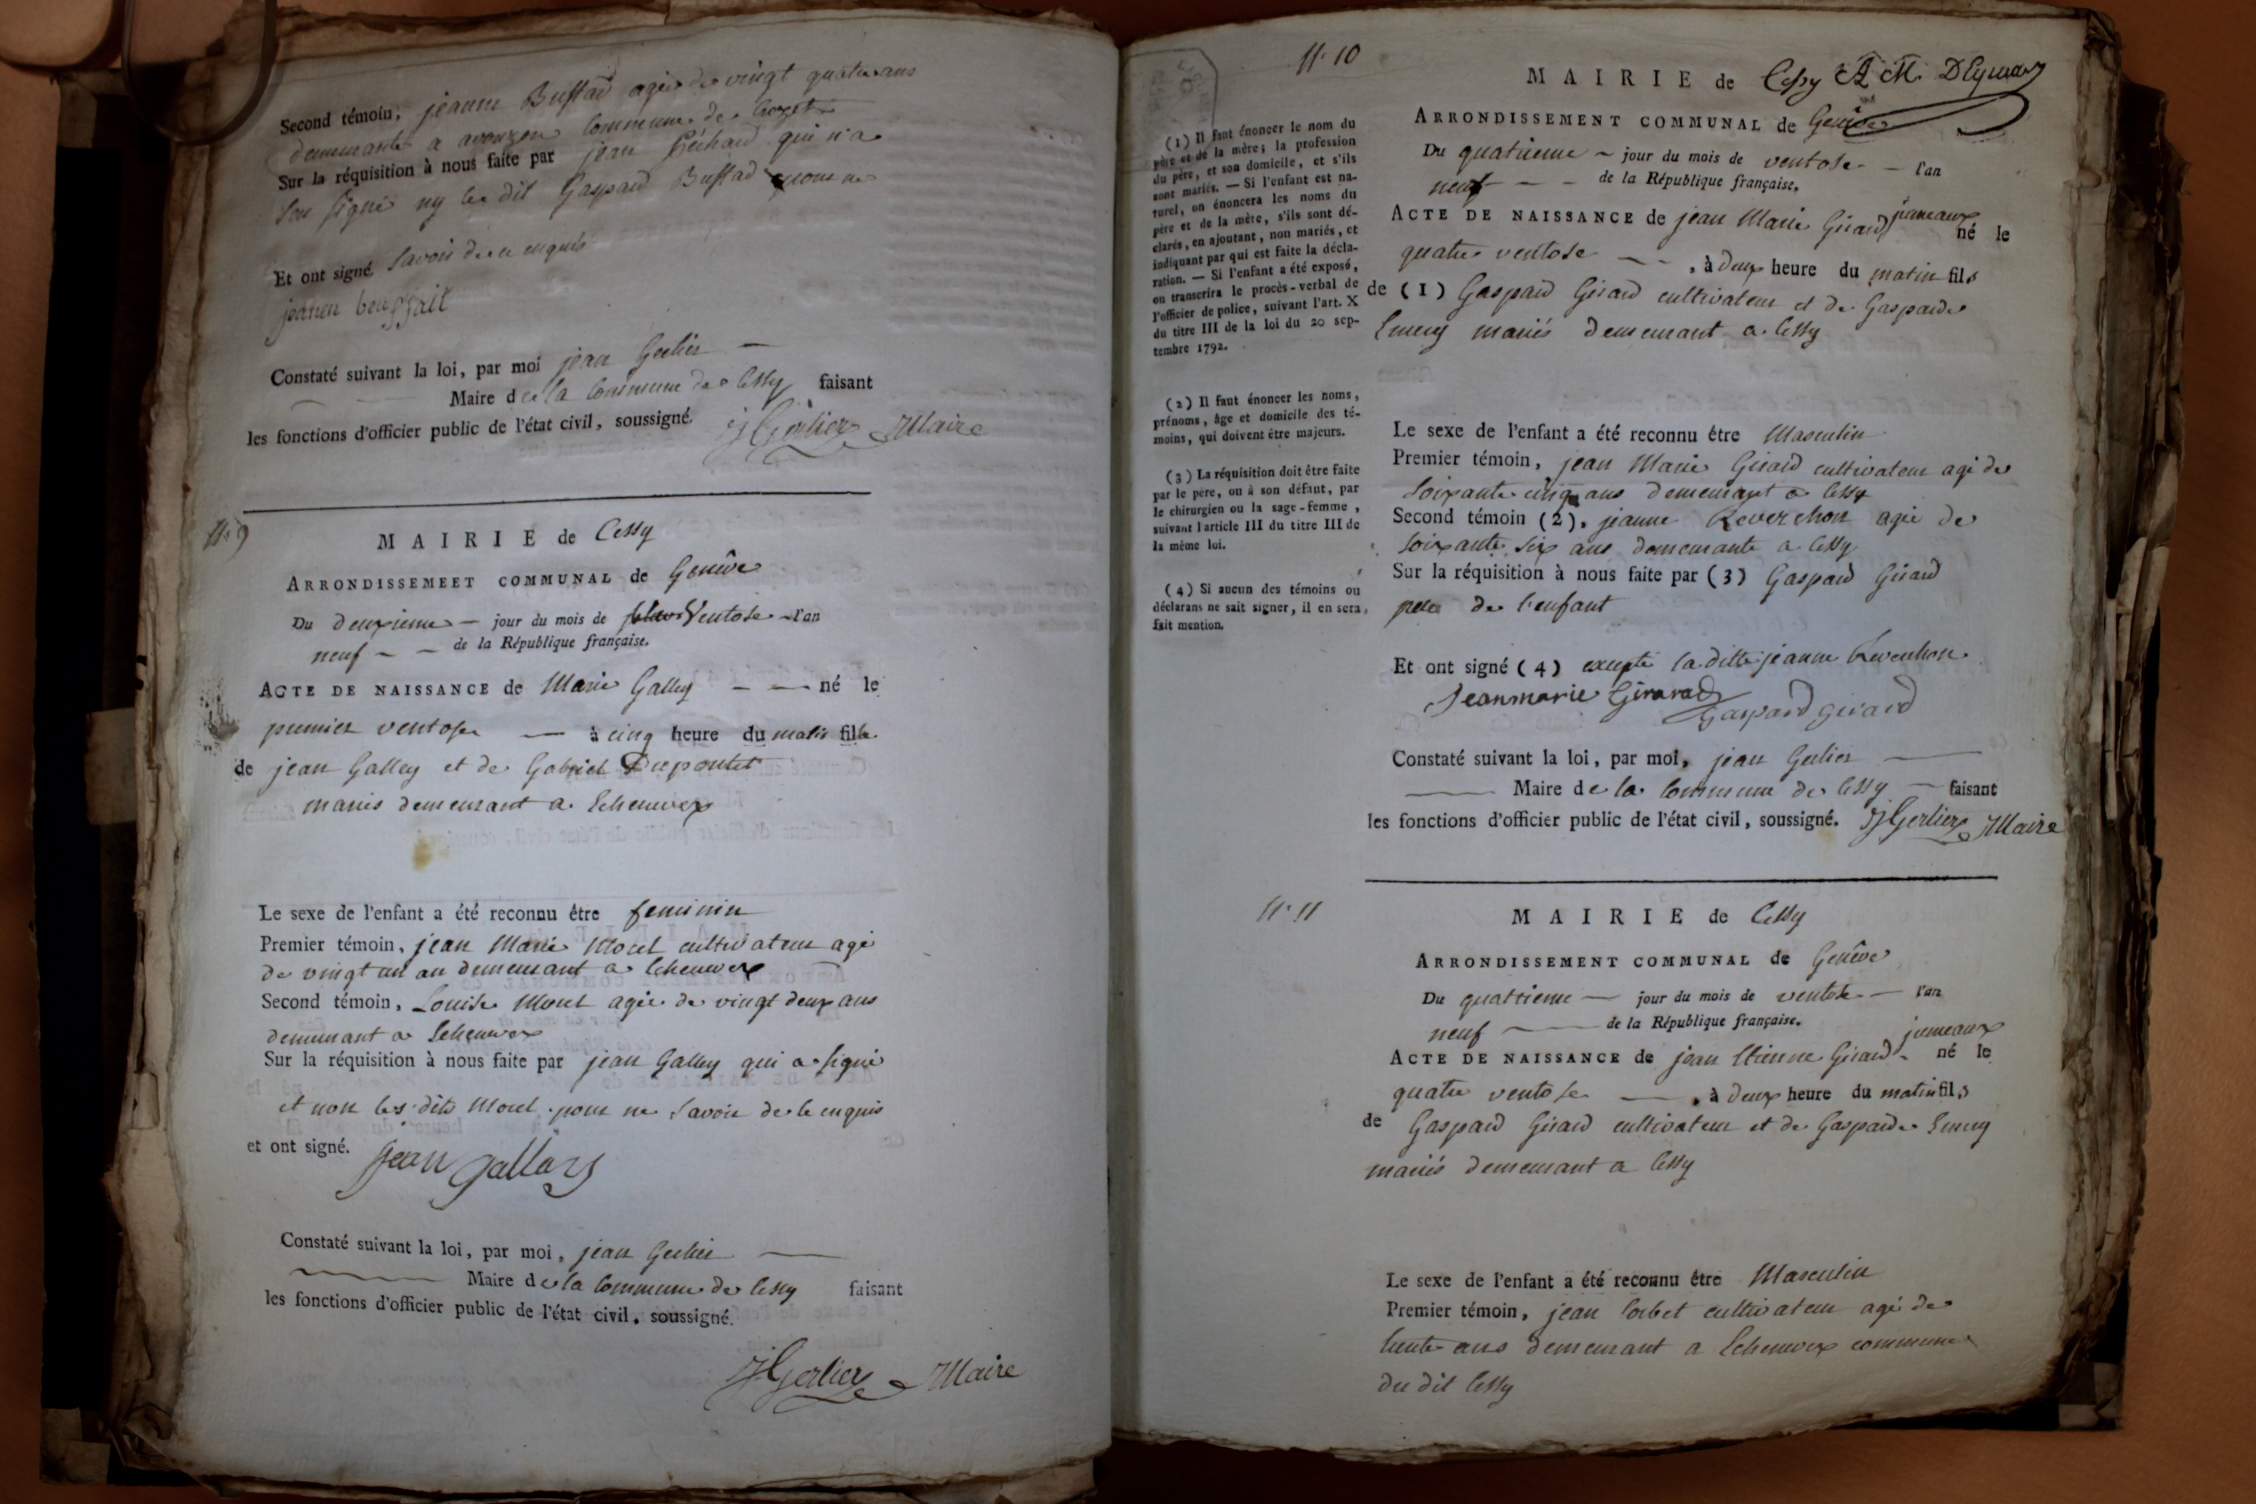 Second témoin, jeanne Buffad agée de vingt quatre ans
demeurante a avouzon Commune de Crozet
Sur la réquisition à nous faite par jean qui n'a
Sou signé ny le dit Gaspard Buffad pour ne
Et ont signé Savoir de ce enquis
jeanen
Constaté suivant la loi, par moi jean Gerlier
Maire de la Commune de Cessy faisant
les fonctions d'officier public de l'état civil, soussigné. JGerlier Maire
N. 9
MAIRIE de Cessy
ARRONDISSEMEET COMMUNAL de Genêve
Du deuxieme jour du mois de Ventose l'an
neuf de la République française.
ACTE DE NAISSANCE de Marie Galley né le
premier ventose à cinq heure du matin fille
de jean Galley et de Gabriel Dupontet
mariés demeurant a Echenevex
Le sexe de l'enfant a été reconnu être feminin
Premier témoin, jean Marie Morel cultivateur agé
de vingt un an demeurant a Echenevex
Second témoin, Louise Morel agée de vingt deux ans
demeurant a Echenevex
Sur la réquisition à nous faite par jean Galley qui a signé
et non les dits Morel pour ne Savoir de le enquis
et ont signé. jean gallay
Constaté suivant la loi, par moi, jean Gerlier
Maire de la Commune de Cessy faisant
les fonctions d'officier public de l'état civil, soussigné.
JGerlier Maire
N. 10
(1) Il faut énoncer le nom du
père et de la mère; la profession
du père, et son domicile, et s'ils
sont mariés. — Si l'enfant est na-
turel, on énoncera les noms du
père et de la mère, s'ils sont dé-
clarés, en ajoutant, non mariés, et
indiquant par qui est faite la décla-
ration. — Si l'enfant a été exposé,
on transcrira le procès-verbal de
l'officier de police, suivant l'art. X
du titre III de la loi du 20 sep-
tembre 1792.
(2) Il faut énoncer les noms,
prénoms, âge et domicile des té-
moins, qui doivent être majeurs.
(3) La réquisition doit être faite
par le père, ou à son défaut, par
le chirurgien ou la sage-femme,
suivant l'article III du titre III de
la même loi.
(4) Si aucun des témoins ou
déclarans ne sait signer, il en sera
fait mention.
MAIRIE de Cessy A. M. DEymar
ARRONDISSEMENT COMMUNAL de Genêve
Du quatrieme jour du mois de ventose l'an
neuf de la République française.
ACTE DE NAISSANCE de jean Marie Girard jumeaux né le
quatre ventose, à deux heure du matin fils
de (1) Gaspard Girard cultivateur et de Gasparde
Emery mariés demeurant a Cessy
Le sexe de l'enfant a été reconnu être Masculin
Premier témoin, jean Marie Girard cultivateur agé de
Soixante cinq ans demeurant a Cessy
Second témoin (2), jeanne Reverchon agée de
Soixante Six ans demeurante a Cessy
Sur la réquisition à nous faite par (3) Gaspard Girard
pere de l'enfant
Et ont signé (4) excepté la ditte jeanne Reverchon
Jeanmarie Girarad
Gaspard girard
Constaté suivant la loi, par moi, jean Gerlier
Maire de la Commune de Cessy faisant
les fonctions d'officier public de l'état civil, soussigné. JGerlier Maire
N. 11
MAIRIE de Cessy
ARRONDISSEMENT COMMUNAL de Genêve
Du quattrieme jour du mois de ventose l'an
neuf de la République française.
ACTE DE NAISSANCE de jean Etienne Girard jumeaux né le
quatre ventose, à deux heure du matin fils
de Gaspard Girard cultivateur et de Gasparde Emery
mariés demeurant a Cessy
Le sexe de l'enfant a été reconnu être Masculin
Premier témoin, jean Corbet cultivateur agé de
trente ans demeurant a Echenevex commune
du dit Cessy